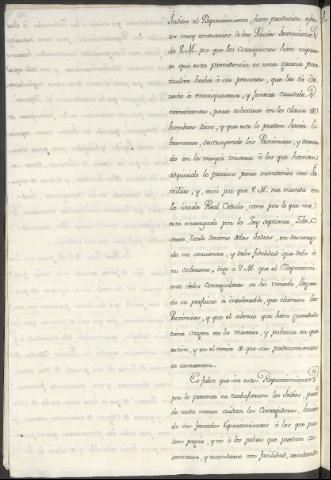 Indias el Repartimiento, han producido efec-
tos muy contrarios à las Reales Intenciones
de V.M. por que los Corregidores han
que esta providencia es una gracia par-
ticular hecha à sus personas, que les dà de-
recho à enriquecerse, y formar caudales
para colocarse en las clases de
hombres Ricos, y que esto lo pueden hacer li-
bremente, destruyendo las Provincias, y
do en la mayor miseria à los que havian
adquirido lo preciso para mantener sus fa-
milias, y assi por que V.M. me manda en
la citada Real Cedula, como por lo que me
està encargado por la Ley septima, Libro
titulo decimo delas Indias, en descargo
de mi conciencia, y dela fidelidad que debo à
mi soberano, digo à V.M. que el Repartimi-
ento delos Corregidores se ha viciado, llegan-
do su perjuicio à intolerable, que claman las
Provincias, y que el clamor que hace
tiene origen en la miseria, y pobreza en que
estàn, y en el exceso de que sus padecimientos
se aumenten.
Es falso que sin este Repartimiento
por la pereza no trabajarian los Indios, pues
de nada menos cuidan los Corregidores, hacen
de sus forzados Repartimientos à los que pue-
den pagar, y no à los pobres que puedan
y esconderse con facilidad,